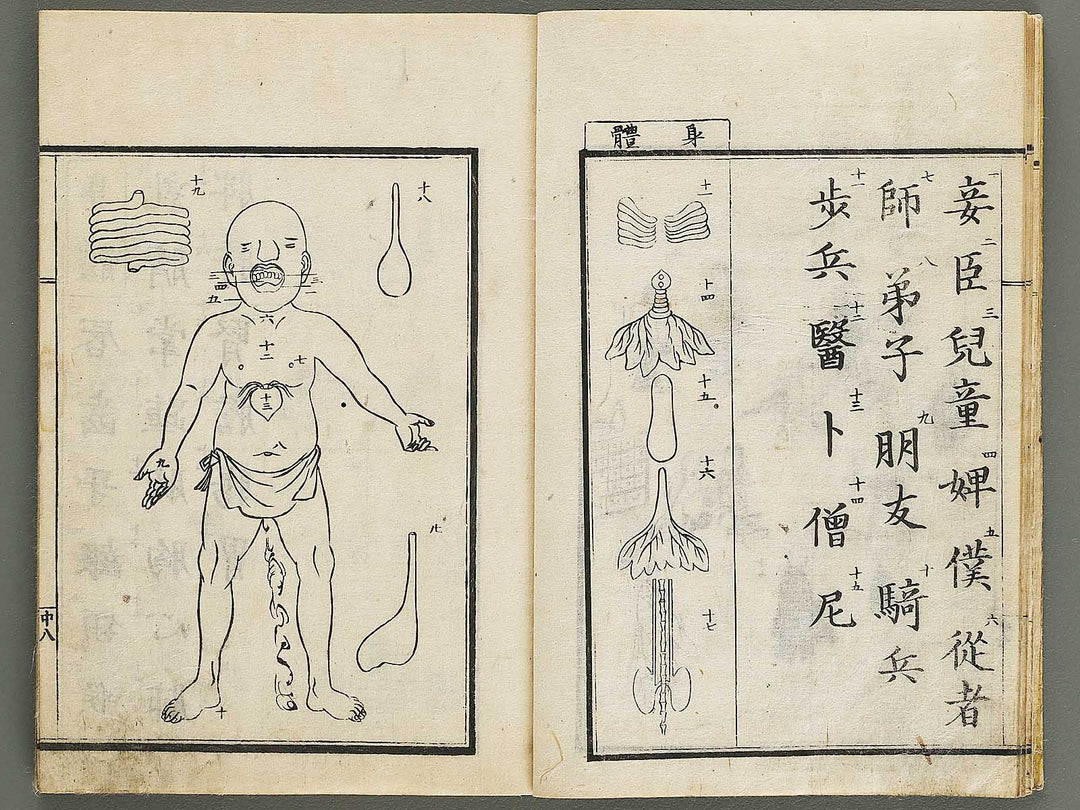 一妾二臣三兒童四婢五僕六從者
七師八弟子九朋友十騎兵
十一步兵十二醫十三卜十四僧十五尼
身體
十一
十四
十五
十六
十七
十八
十九
二
三
四
五
六
七
十二
十三
八
九
十
中八